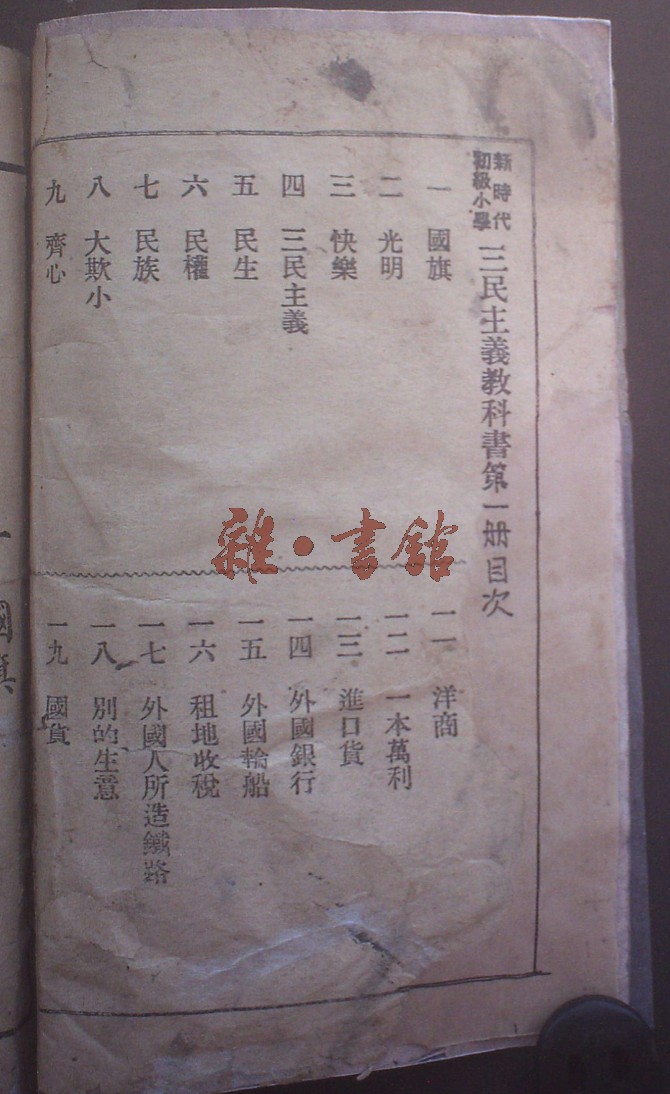 新時代
初級小學
三民主義教科書第一册目次
一 國旗
二 光明
三 快樂
四 三民主義
五 民生
六 民權
七 民族
八 大欺小
九 齊心
一一 洋商
一二 一本萬利
一三 進口貨
一四 外國銀行
一五 外國輪船
一六 租地收稅
一七 外國人所造鐵路
一八 別的生意
一九 國貨
雜·書館
一 國旗